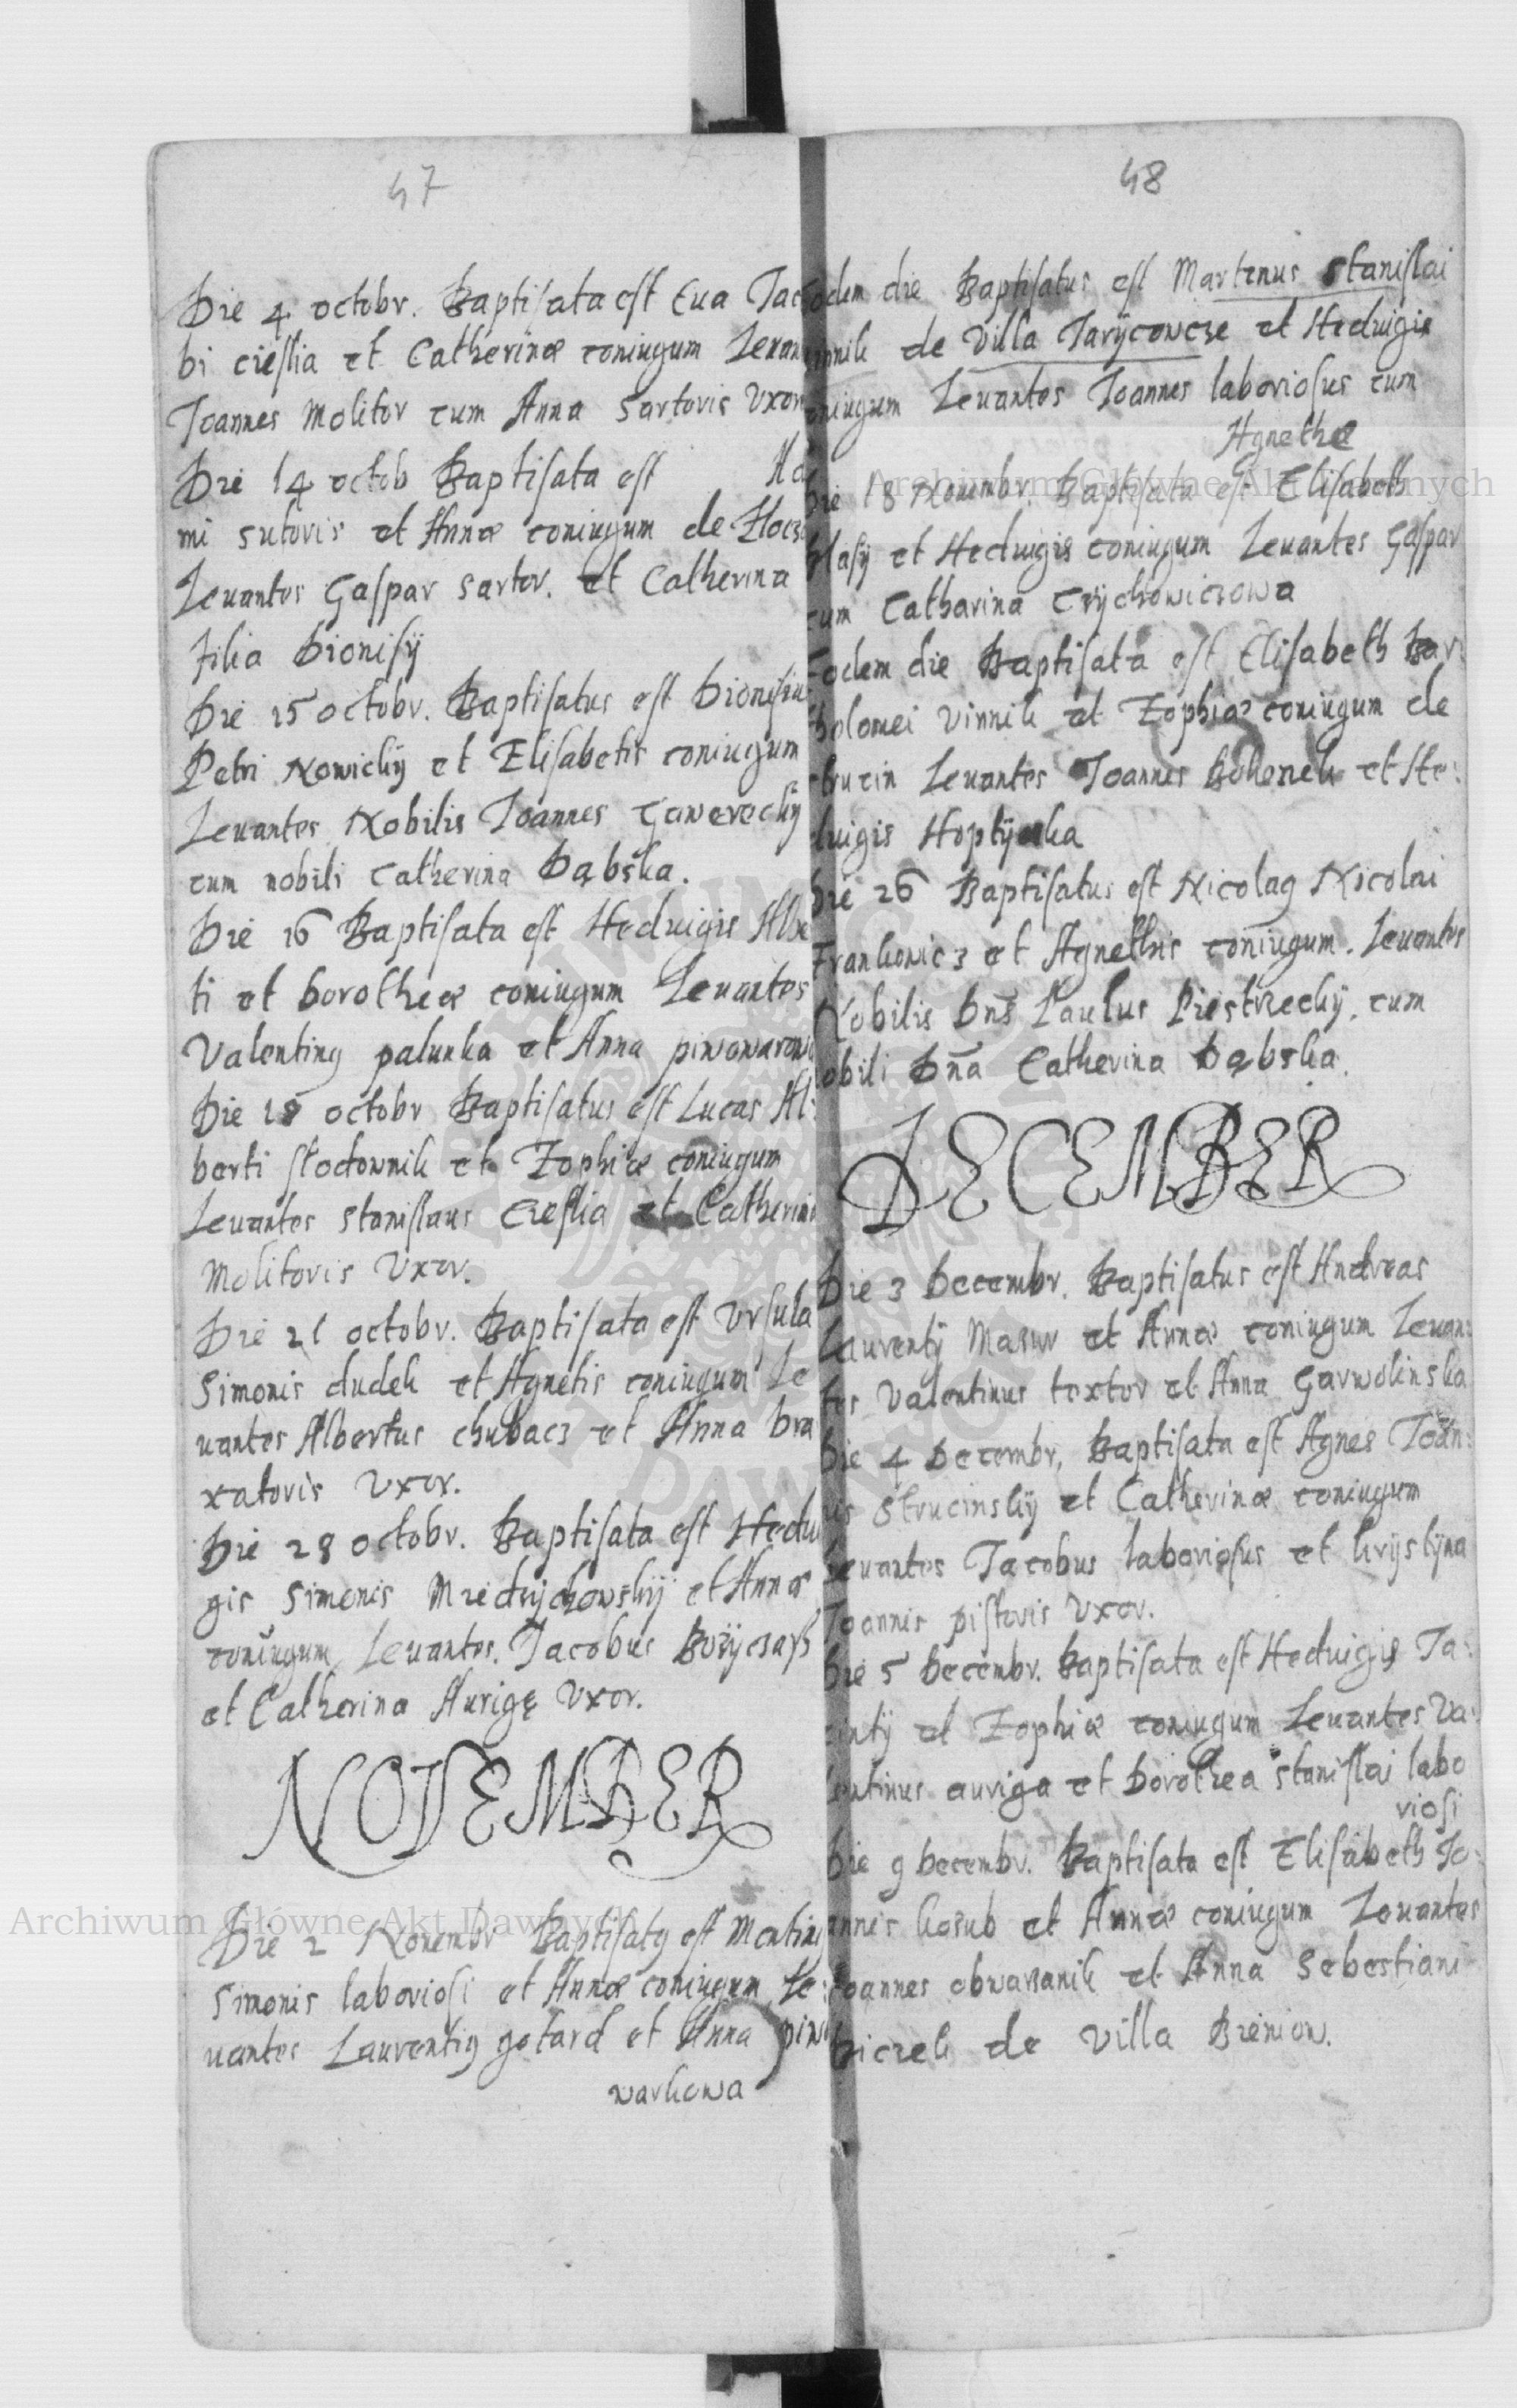 47
Die 4 octobr. Baptisata est Eua Jaco
bi cieslia et Catherinæ coniugum Leuan
Joannes Molitor cum Anna sartoris Vxor
Die 14 octob Baptisata est Ada
mi sutoris et Annæ coniugum de
Leuantes Gaspar sartor. et Catherina
filia Dionisÿ
Die 15 octobr. Baptisatus est Dionisiu
Petri Nowickÿ et Elisabetis coniugum
Leuantes Nobilis Joannes Gawareckÿ
cum nobili Catherina Dąbska.
Die 16 Baptisata est Heduigis Albe
ti et Dorotheæ coniugum Leuantes
Valentinꝰ palunka et Anna piwowarow
Die 18 octobr Baptisatus est Lucas Al:
berti słodownik et Zophiæ coniugum
Leuantes Stanislaus Cieslia et Catherina
Molitoris Vxor.
Die 21 octobr. Baptisata est Vrsula
Simonis dudek et Agnetis coniugum Le
uantes Albertus chubacz et Anna bra
xatoris Vxor.
Die 28 octobr. Baptisata est Hedui
gis Simonis et Annæ
coniugum Leuantes. Jacobus
et Catherina Aurigę Vxor.
NOVEMBER
Die 2 Nouembr Baptisatꝰ est Martinꝰ
Simonis laboriosi et Annæ coniugum Le:
uantes Laurentiꝰ gotard et Anna piwo
warkowa
48
odem die Baptisatus est Martinus Stanislai
innik de Villa Jarÿcowcze et Heduigis
oniugum Leuantes Joannes laboriosus cum
Agnethæ
Die 18 Nouembr. Baptisata est Elisabeth
Blasÿ et Heduigis coniugum Leuantes Gaspar
cum Catharina Crÿchowiczowa
Eodem die Baptisata est Elisabeth Bar:
tholomei Vinnik et Zophiæ coniugum de
Strucin Leuantes Joannes et He:
duigis
Die 26 Baptisatus est Nicolaꝰ Nicolai
Frankowicz et Agnethis coniugum. Leuantes
Nobilis Dns̄ Paulus Piestrzeckÿ. cum
obili Dn̄a Catherina Dąbska.
DECEMBER
Die 3 Decembr. Baptisatus est Andreas
Laurentÿ Masur et Annæ coniugum Leuan:
tes Valentinus textor et Anna Garwolinska
Die 4 Decembr. Baptisata est Agnes Joan:
is Strucinskÿ et Catherinæ coniugum
Leuantes Jacobus laboriosus et krÿstÿna
Joannis pistoris Vxor.
Die 5 Decembr. Baptisata est Heduigis Ja:
cintÿ et Zophiæ coniugum Leuantes Va:
lentinus auriga et Dorothea Stanislai labo
riosi
Die 9 Decembr. Baptisata est Elisabeth Jo:
annis kosub et Annæ coniugum Leuantes
Joannes obwarzanik et Anna Sebestiani
de Villa Brenow.
Archiwum Główne Akt Dawnych
Archiwum Główne Akt Dawnych